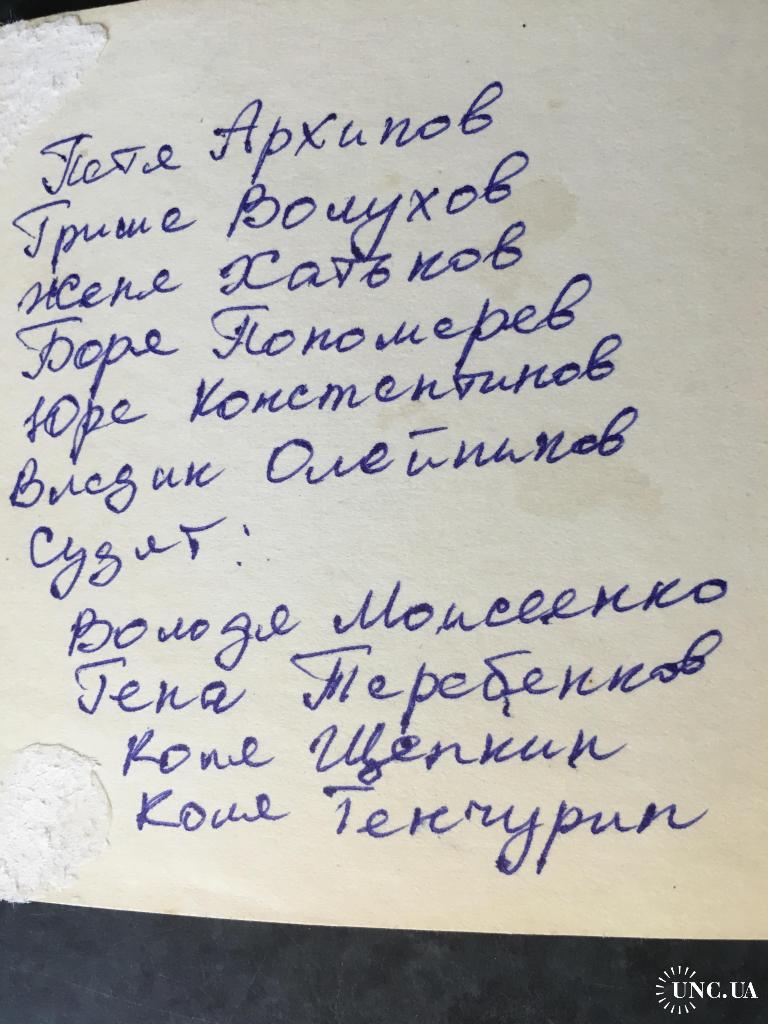 Петя Архипов
Гриша Волухов
Женя Хатьков
Боря Пономарев
Юра Константинов
Владик Олейников
Судят:
Володя Моисеенко
Гена Теребенков
Коля Щепкин
Коля Генчурин
UNC.UA